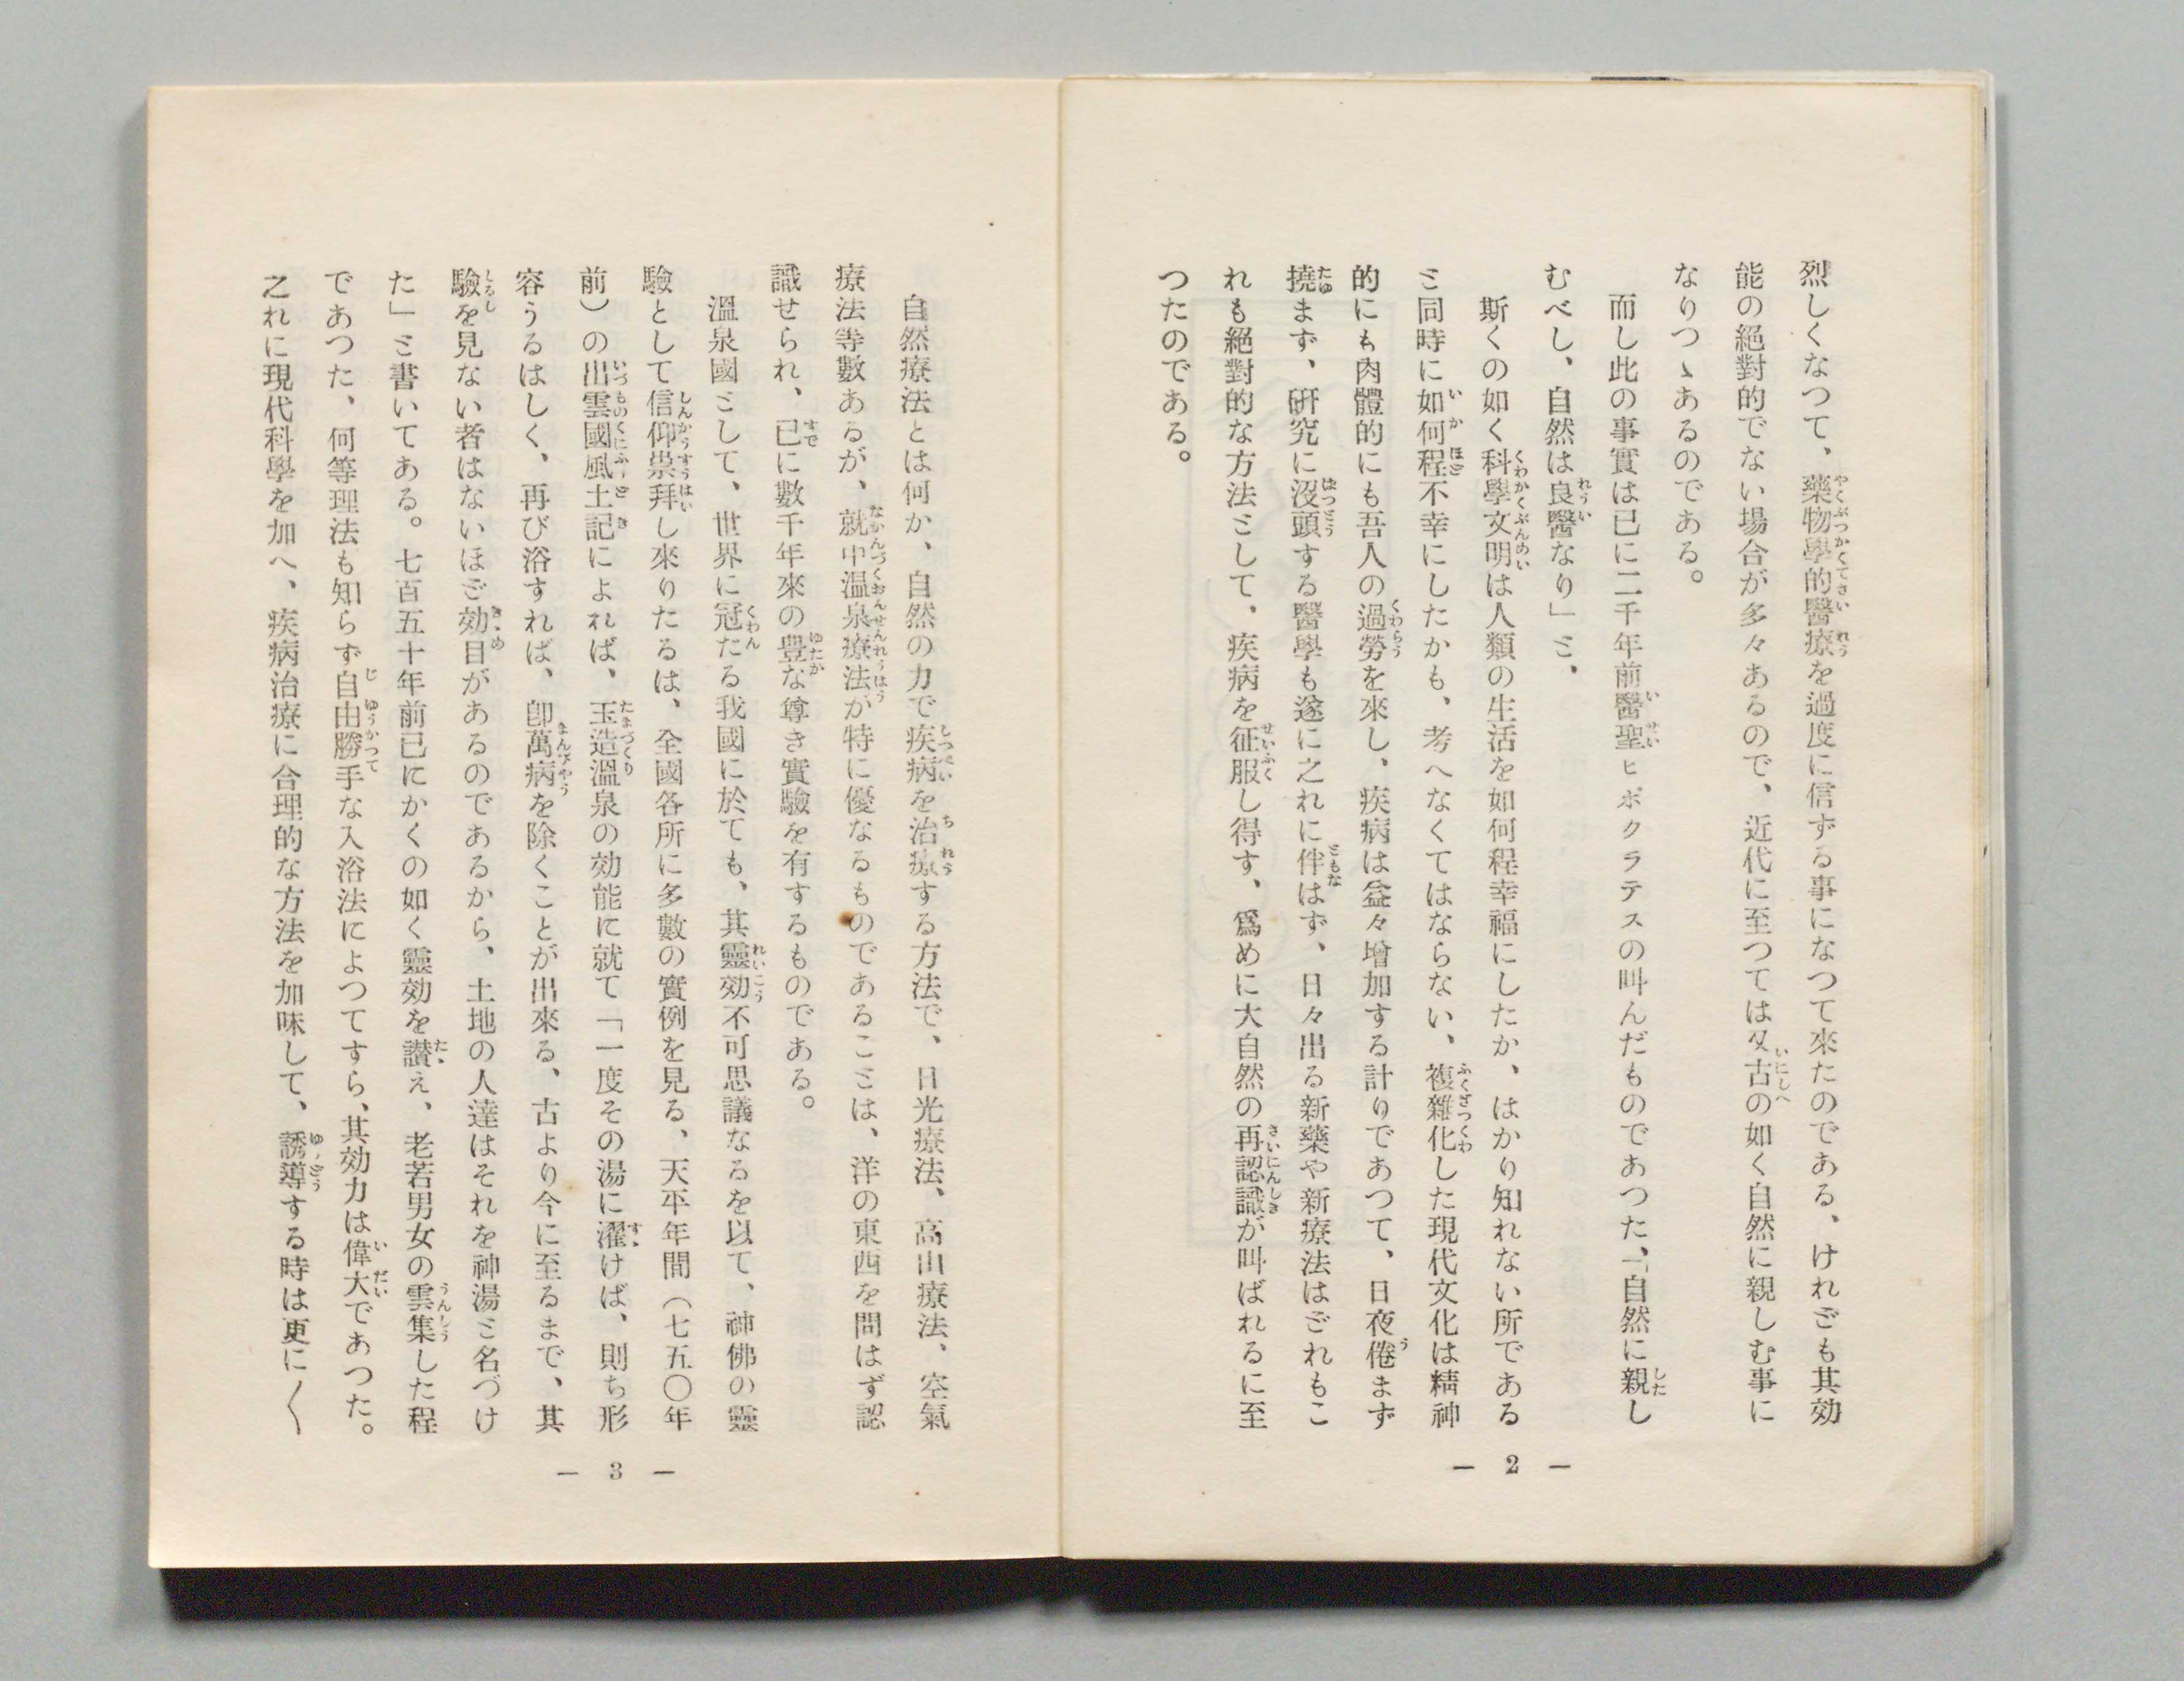 烈しくなつて、藥物學的醫療を過度に信ずる事になつて來たのである、けれども其効
能の絕對的でない場合が多々あるので、近代に至つては又古の如く自然に親しむ事に
なりつゝあるのである。
而し此の事實は已に二千年前醫聖ヒポクラテスの叫んだものであつた、「自然に親し
むべし、自然は良醫なり」ミ、
斯くの如く科學文明は人類の生活を如何程幸福にしたか、はかり知れない所である
ミ同時に如何程不幸にしたかも、考へなくてはならない、複雜化した現代文化は精神
的にも肉體的にも吾人の過勞を來し、疾病は益々增加する計りであつて、日夜倦まず
撓まず、硏究に沒頭する醫學も遂に之れに伴はず、日々出る新藥や新療法はどれもこ
れも絕對的な方法ミして、疾病を征服し得す、爲めに大自然の再認識が叫ばれるに至
つたのである。
— 2 —
自然療法とは何か、自然の力で疾病を治療する方法で、日光療法、高山療法、空氣
療法等數あるが、就中溫泉療法が特に優なるものであるこミは、洋の東西を問はず認
識せられ、已に數千年來の豊な尊き實驗を有するものである。
溫泉國ミして、世界に冠たる我國に於ても、其靈効不可思議なるを以て、神佛の靈
驗として信仰崇拜し來りたるは、全國各所に多數の實例を見る、天平年間（七五〇年
前）の出雲國風土記によれば、玉造溫泉の効能に就て「一度その湯に濯けば、則ち形
容うるはしく、再び浴すれば、卽萬病を除くことが出來る、古より今に至るまで、其
驗を見ない者はないほど効目があるのであるから、土地の人達はそれを神湯ミ名づけ
た」ミ書いてある。七百五十年前已にかくの如く靈効を讃え、老若男女の雲集した程
であつた、何等理法も知らず自由勝手な入浴法によつてすら、其効力は偉大であつた。
之れに現代科學を加へ、疾病治療に合理的な方法を加味して、誘導する時は更に〱
— 3 —